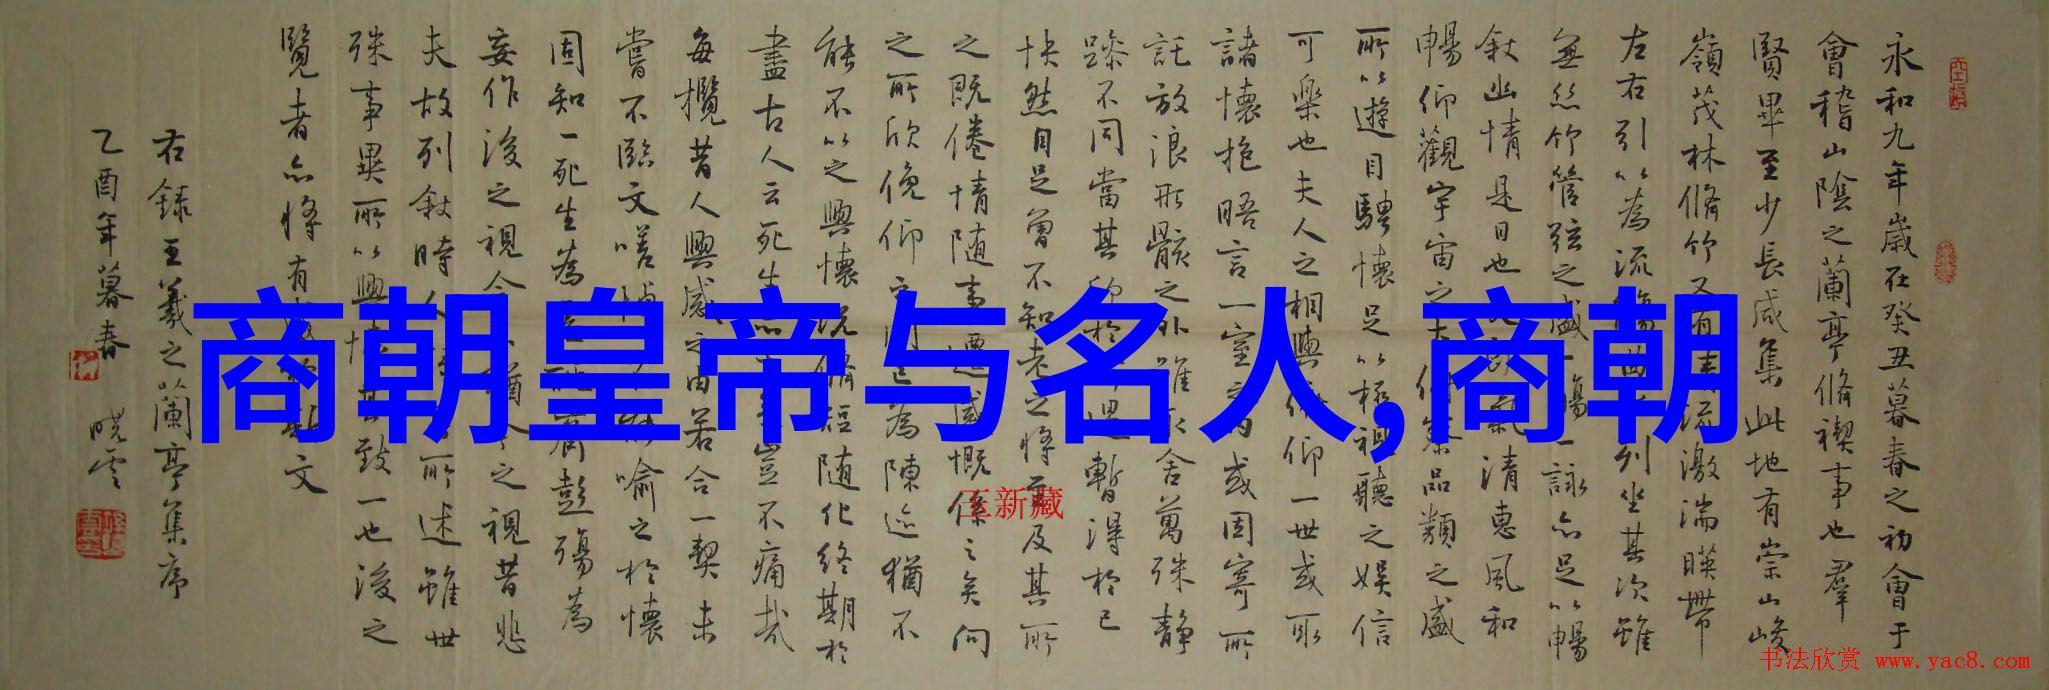 永和九年歲在癸丑暮春之初會于
會稽山陰之蘭亭脩禊事也羣
賢畢至少長咸集此地有崇山峻
嶺茂林脩竹又有清流激湍暎帶
左右引以為流觴曲列坐其次雖
無絲竹管弦之盛一觴一詠亦足以暢
敘幽情是日也氣清惠風和
暢仰觀宇宙之大俯察品類之盛
所以遊目騁懷足以極視聽之娛信
可樂也夫人之相與俯仰一世或取
諸懷抱晤言一室之內或因寄所
託放浪形骸之外雖取舍萬殊靜
躁不同當其欣於遇暫得於己
快然自足曾不知老之將至及其所
之既倦情随事遷感慨係之矣向
之所欣俛仰之間已為陳迹猶不
能不以之興懷況脩短随化終期於
盡古人云死生亦豈不痛哉
每攬昔人興感之由若合一契未
嘗不臨文嗟悼不喻之於懷
固知一死生為齊彭殤為
妄作後之視今猶之視昔悲
夫故列敘時人所述雖世
殊事異所以興懷其致一也後之
覽者亦將有感斯文
右錄王羲之蘭亭集序
乙酉年暮春 曉雲
商朝皇帝与名人,商朝
王新藏
书法欣赏 www.yac8.com